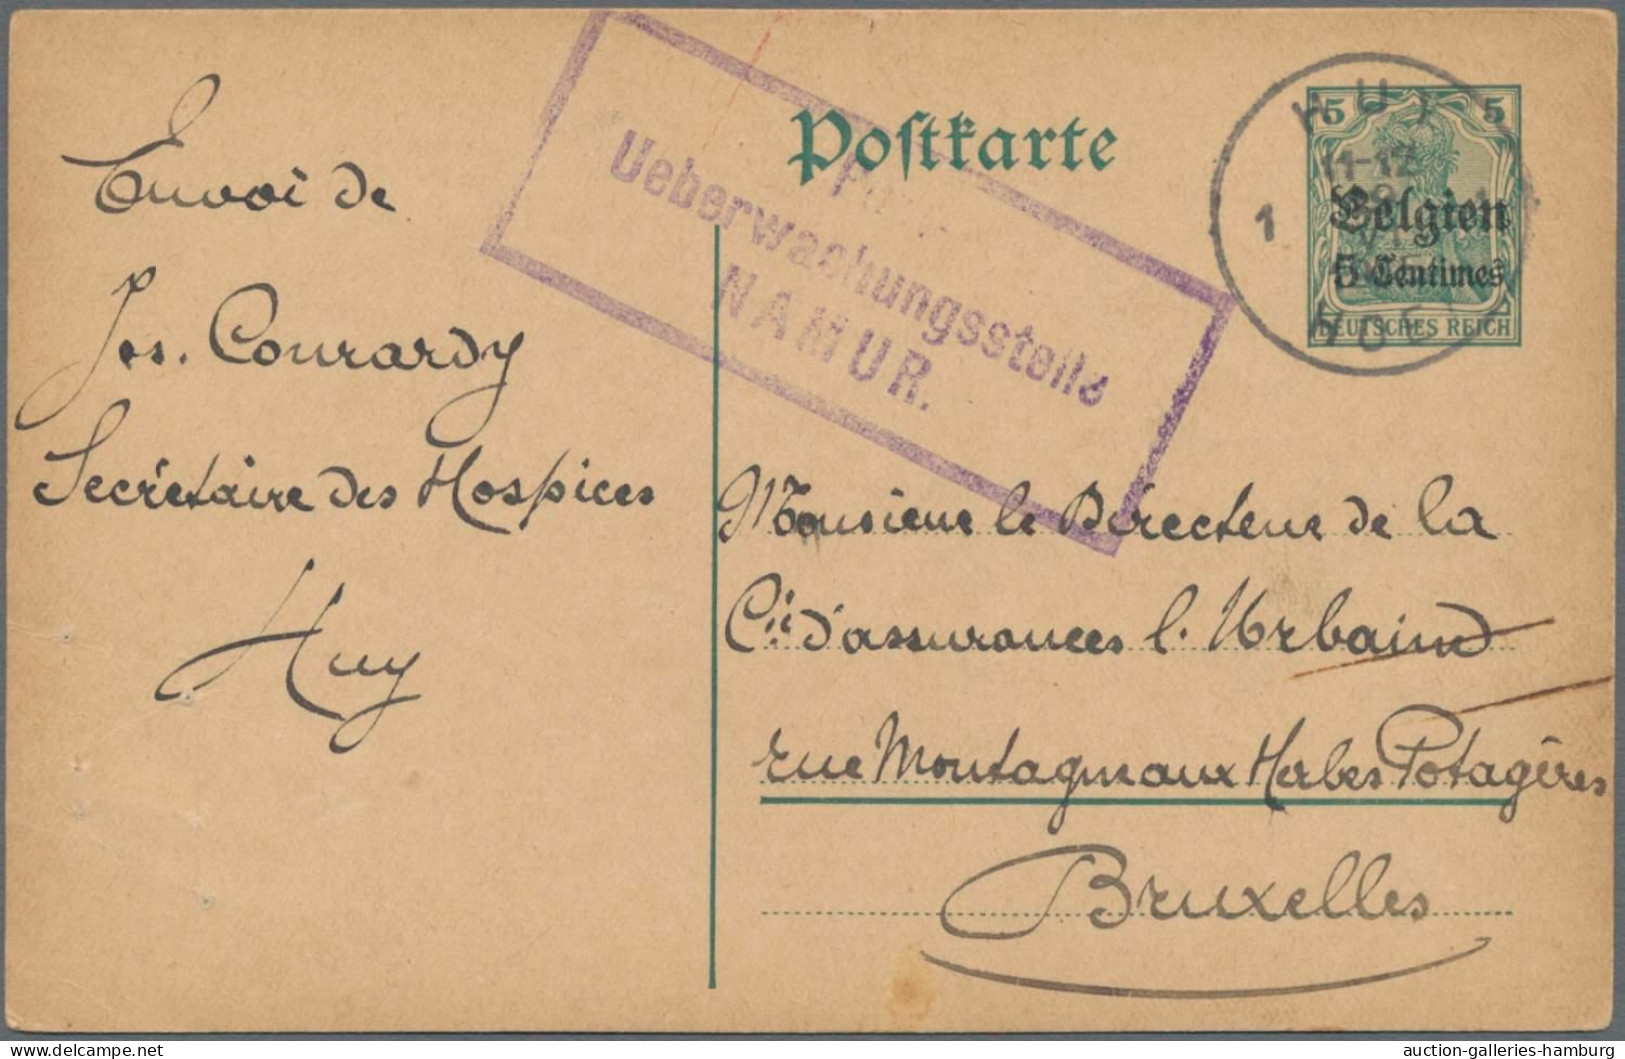 Postkarte
Ueberwachungsstelle
NAMUR.
HUY
11-12
1
HOEI
5 5
Belgien
5 Centimes
DEUTSCHES REICH
Envoi de
Jos. Courardy
Secrétaire des Hospices
Huy
Monsieur le Directeur de la
Cie d'assurances l'Urbaine
rue Montagne aux Herbes Potagères
Bruxelles
auction-galleries-hamburg